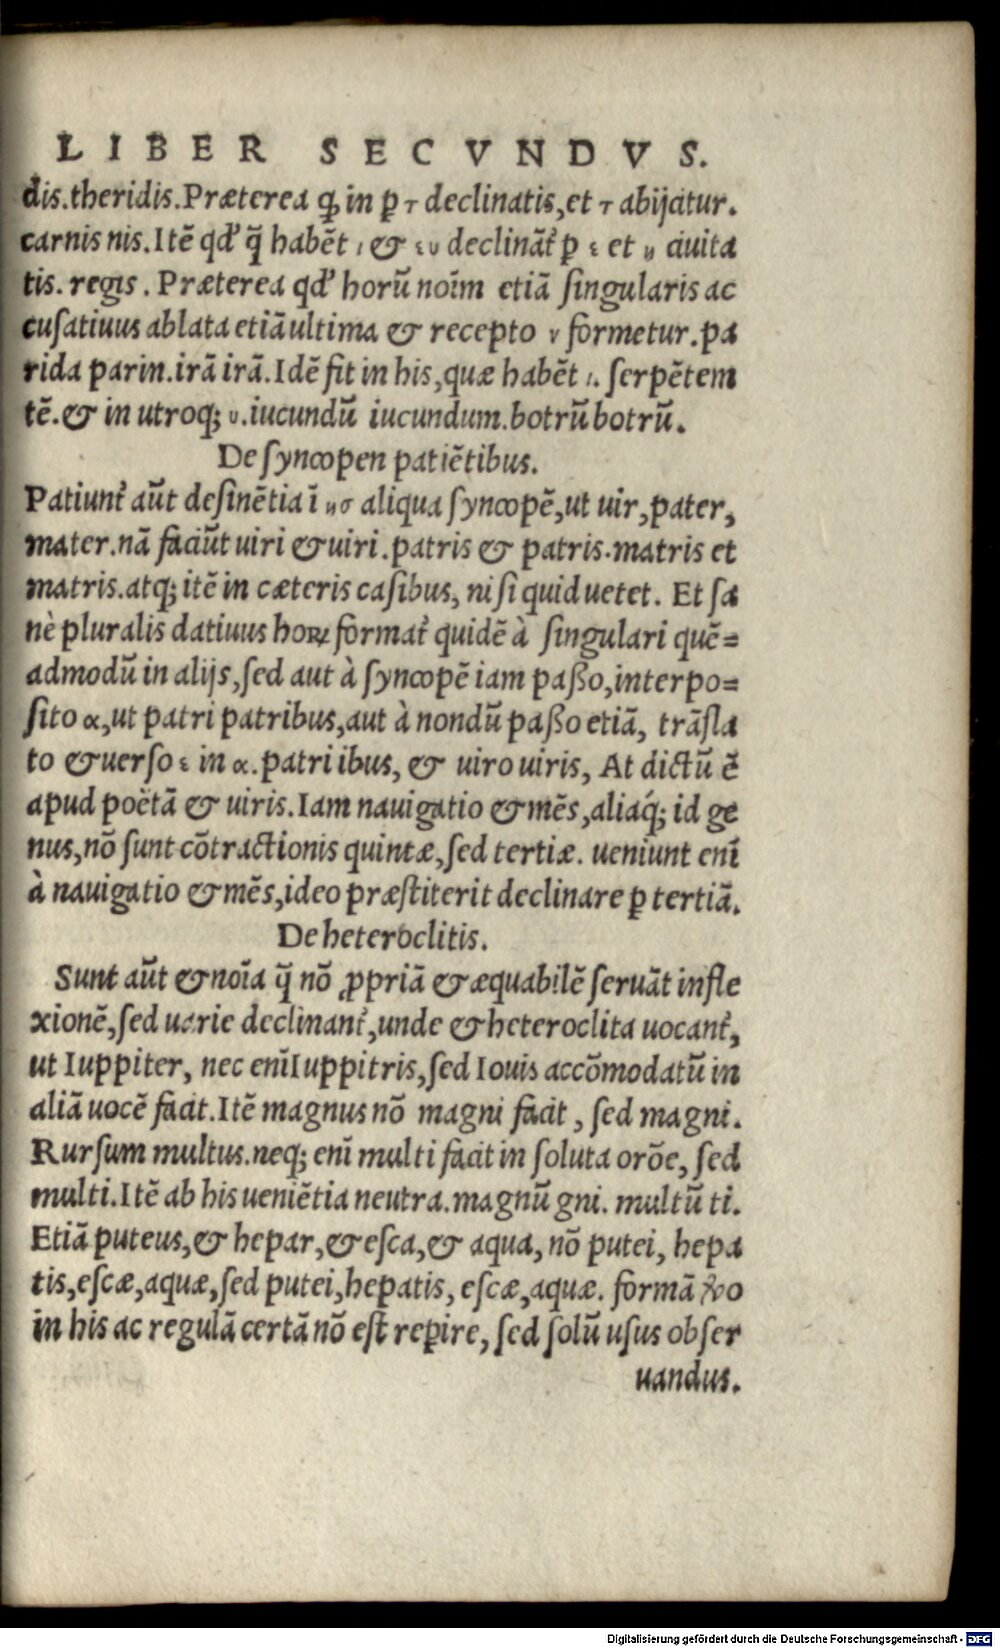 LIBER SECVNDVS.
dis.theridis.Præterea ꝙ in ꝑ τ declinatis,et τ abijcitur.
carnis nis.Itẽ qd' q̃ habẽt ι & ευ declinãt̃ ꝑ ε et η ciuita
tis. regis. Præterea qd' horũ noĩm etiã ſingularis ac
cuſatiuus ablata etiã ultima & recepto ν formetur.pa
rida parin.irã irã.Idẽ fit in his,quæ habẽt ι. ſerpẽtem
tẽ.& in utroq; υ.iucundũ iucundum.botrũ botrũ.
De ſyncopen patiẽtibus.
Patiunt̃ aũt deſinẽtia ĩ ησ aliqua ſyncopẽ,ut uir,pater,
mater.nã faciũt uiri & uiri.patris & patris.matris et
matris.atq; itẽ in cæteris caſibus, niſi quid uetet. Et ſa
nè pluralis datiuus hoꝝ format̃ quidẽ à ſingulari quẽ=
admodũ in alijs,ſed aut à ſyncopẽ iam paßo,interpo=
ſito α,ut patri patribus,aut à nondũ paßo etiã, trãſla
to & uerſo ε in α.patri ibus, & uiro uiris, At dictũ ẽ
apud poëtã & uiris.Iam nauigatio & mẽs,aliaq́; id ge
nus,nõ ſunt cõtractionis quintæ,ſed tertiæ. ueniunt enĩ
à nauigatio & mẽs,ideo præſtiterit declinare ꝑ tertiã.
De heteroclitis.
Sunt aũt & noĩa q̃ nõ ꝓpriã & æquabilẽ ſeruãt infle
xionẽ,ſed uarie declinant̃,unde & heteroclita uocant̃,
ut Iuppiter, nec enĩ Iuppitris,ſed Iouis accõmodatũ in
aliã uocẽ facit.Itẽ magnus nõ magni facit, ſed magni.
Rurſum multus.neq; enĩ multi facit in ſoluta orõe, ſed
multi.Itẽ ab his ueniẽtia neutra.magnũ gni. multũ ti.
Etiã puteus,& hepar,& eſca,& aqua, nõ putei, hepa
tis,eſcæ,aquæ,ſed putei,hepatis, eſcæ,aquæ. formã
in his ac regulã certã nõ eſt reꝑire, ſed ſolũ uſus obſer
uandus.
Digitalisierung gefördert durch die Deutsche Forschungsgemeinschaft - DFG